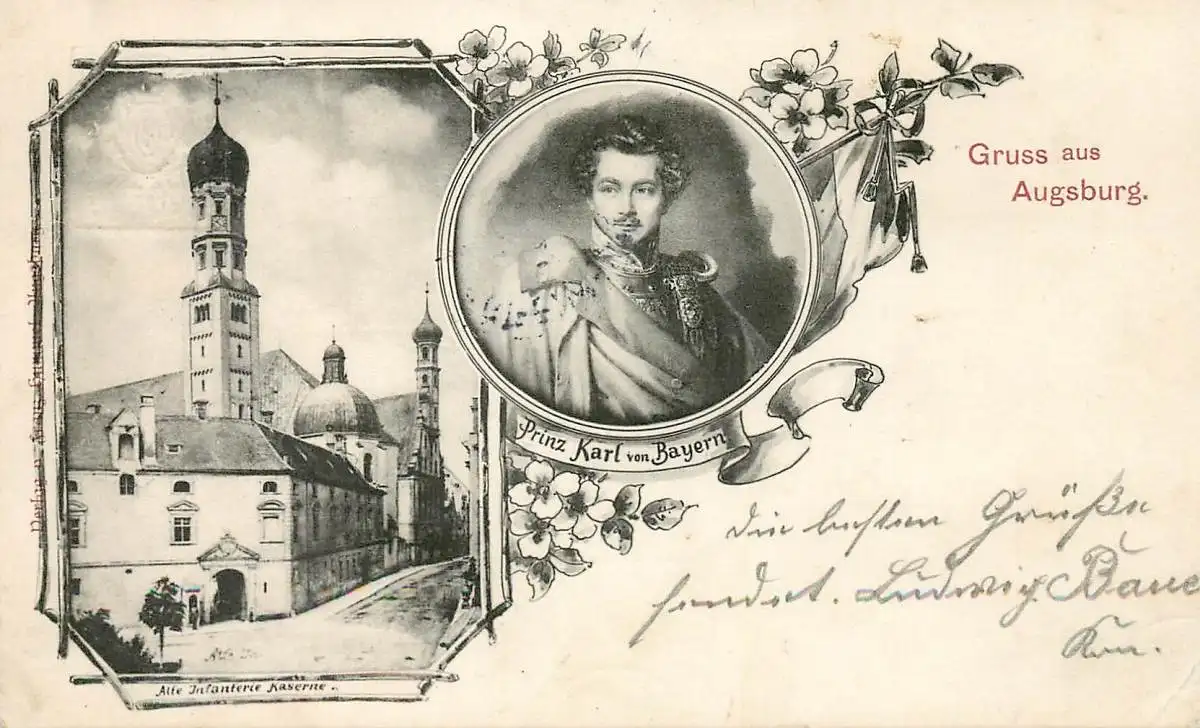 Gruss aus
Augsburg.
Prinz Karl von Bayern
Alte Infanterie Kaserne.
Die besten Grüße
sendet. Ludwig Baue